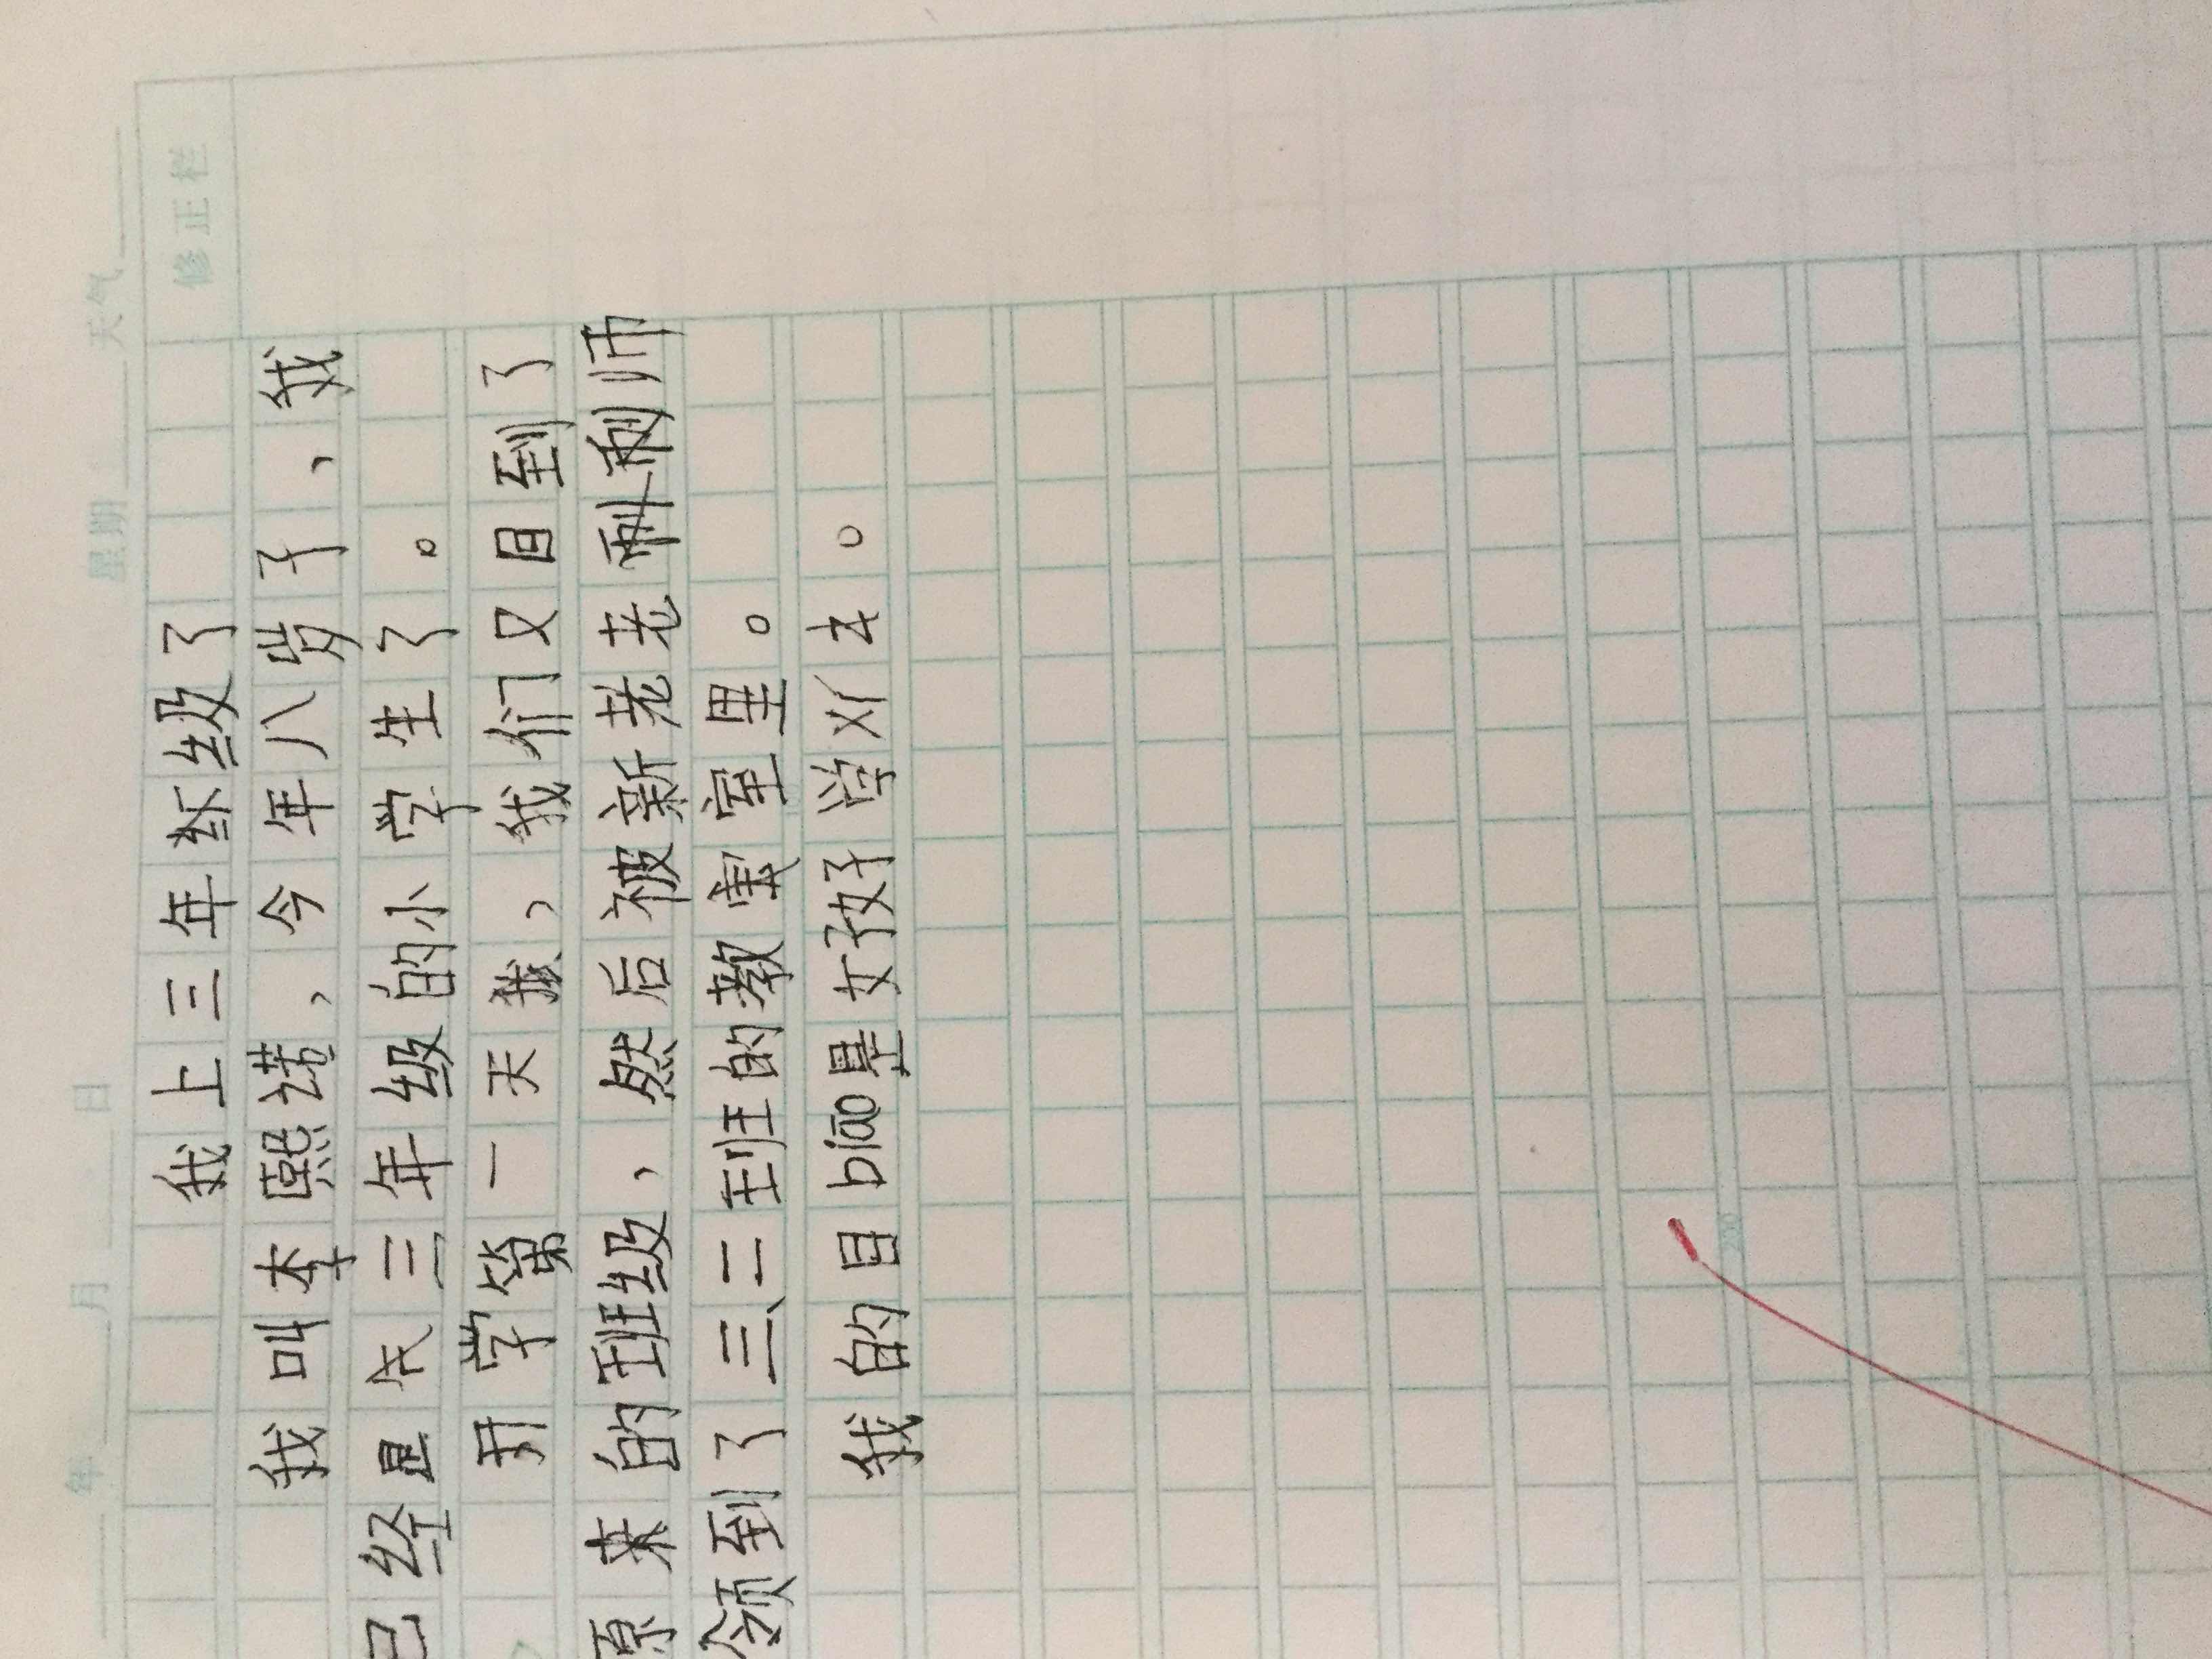 年 月 日 星期 天气
修正栏
我上三年级了
我叫李熙诺，今年八岁了，我
已经是三年级的小学生了。
开学第一天，我们又回到了
原来的班级，然后被新老师
领到了三、二班的教室里。
我的目biāo是好学习。